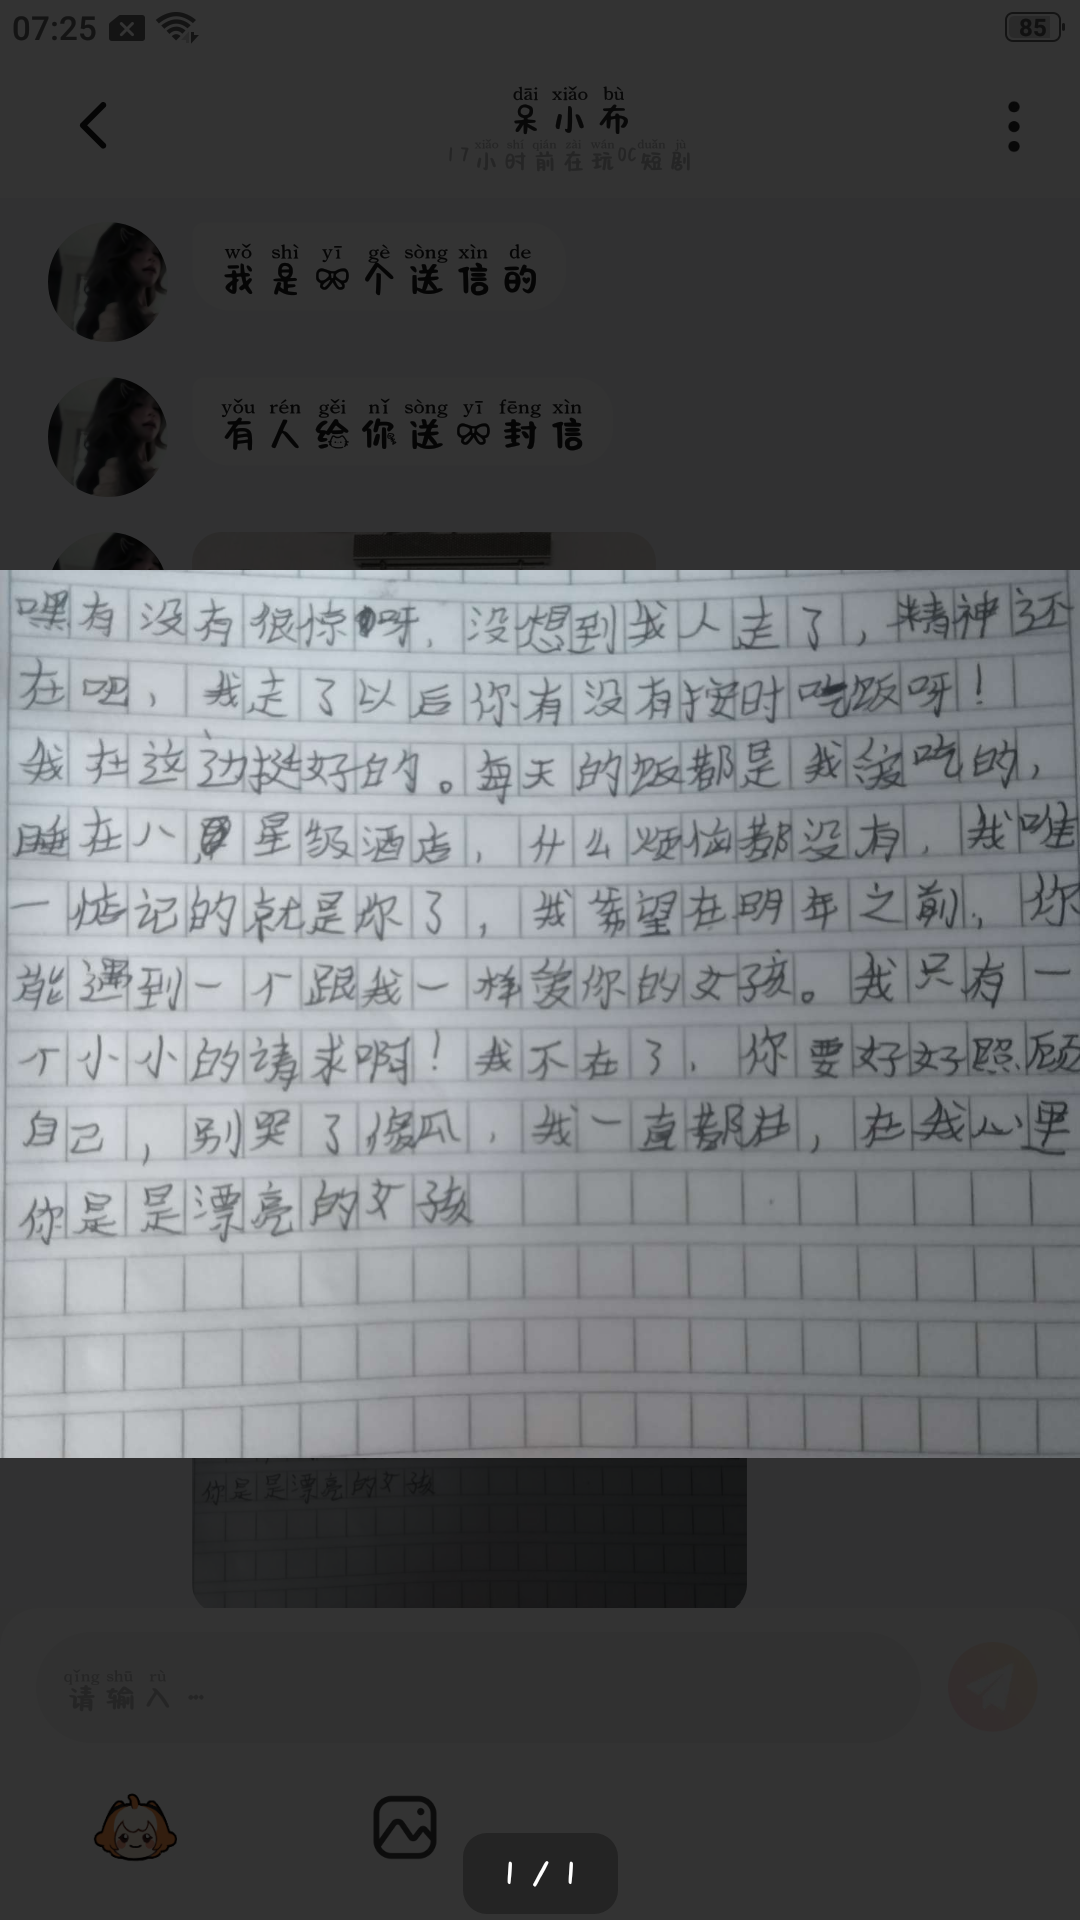 07:25
85
dāi xiǎo bù
呆小布
xiǎo shí qián zài wán duǎn jù
17小时前在玩OC短剧
wǒ shì yī gè sòng xìn de
我是个送信的
yǒu rén gěi nǐ sòng yī fēng xìn
有人给你送封信
嘿有没有很惊呀,没想到我人走了,精神还
在吧,我走了以后你有没有按时吃饭呀!
我在这边挺好的。每天的饭都是我爱吃的,
睡在八星级酒店,什么烦恼都没有,我唯
一惦记的就是你了,我希望在明年之前,你
能遇到一个跟我一样爱你的女孩。我只有一
个小小的请求啊!我不在了,你要好好照顾
自己,别哭了傻瓜,我一直都在,在我心里
你是是漂亮的女孩
你是是漂亮的女孩
qǐng shū rù
请输入…
1/1